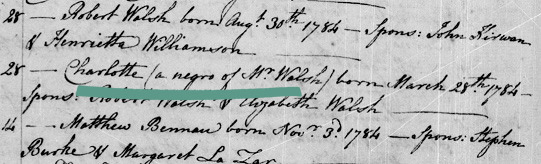 28 — Robert Walsh born Augt. 30th 1784 — Spons: John Kirwan
& Henrietta Williamson
28 — Charlotte (a negro of Mr Walsh) born March 28th 1784 —
Spons: Robert Walsh & Elyzabeth Walsh
14 — Matthew Bennau born Novr. 3d. 1784 — Spons: Stephen
Burke & Margaret La Zar